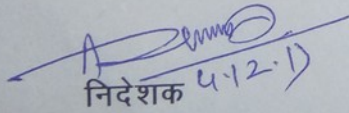 निदेशक 4.12.17